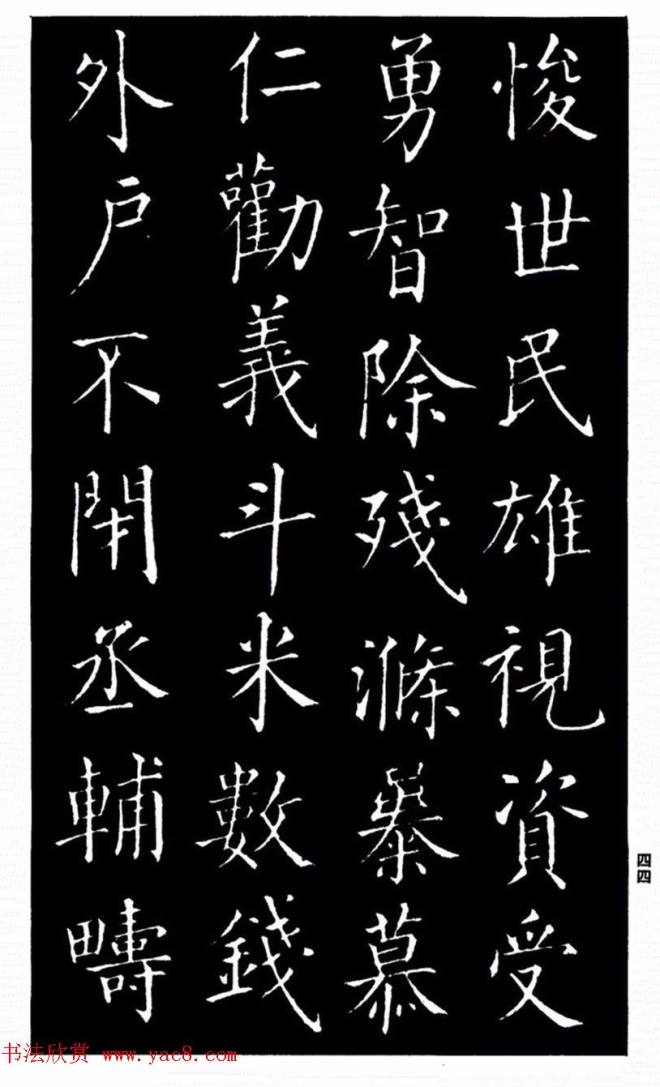 悛世民雄視資受
勇智除殘滌暴慕
仁勸義斗米數錢
外户不閇丞輔疇
四四
书法欣赏 www.yac8.com